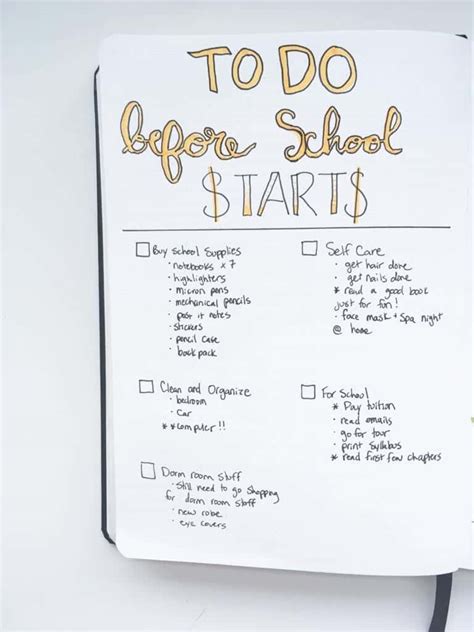 TO DO
before School
STARTS
Buy School Supplies
· notebooks x 7
· highlighters
· micron pens
· mechanical pencils
· post it notes
· stickers
· pencil case
· back pack
Self Care
· get hair done
· get nails done
* read a good book
just for fun!
· face mask + Spa night
@ home
Clean and Organize
· bedroom
· Car
**computer!!
For School
* Pay tuition
· read emails
· go for tour
· print Syllabus
* read first few chapters
Dorm room stuff
· Still need to go Shopping
for dorm room stuff
· new robe
· eye covers